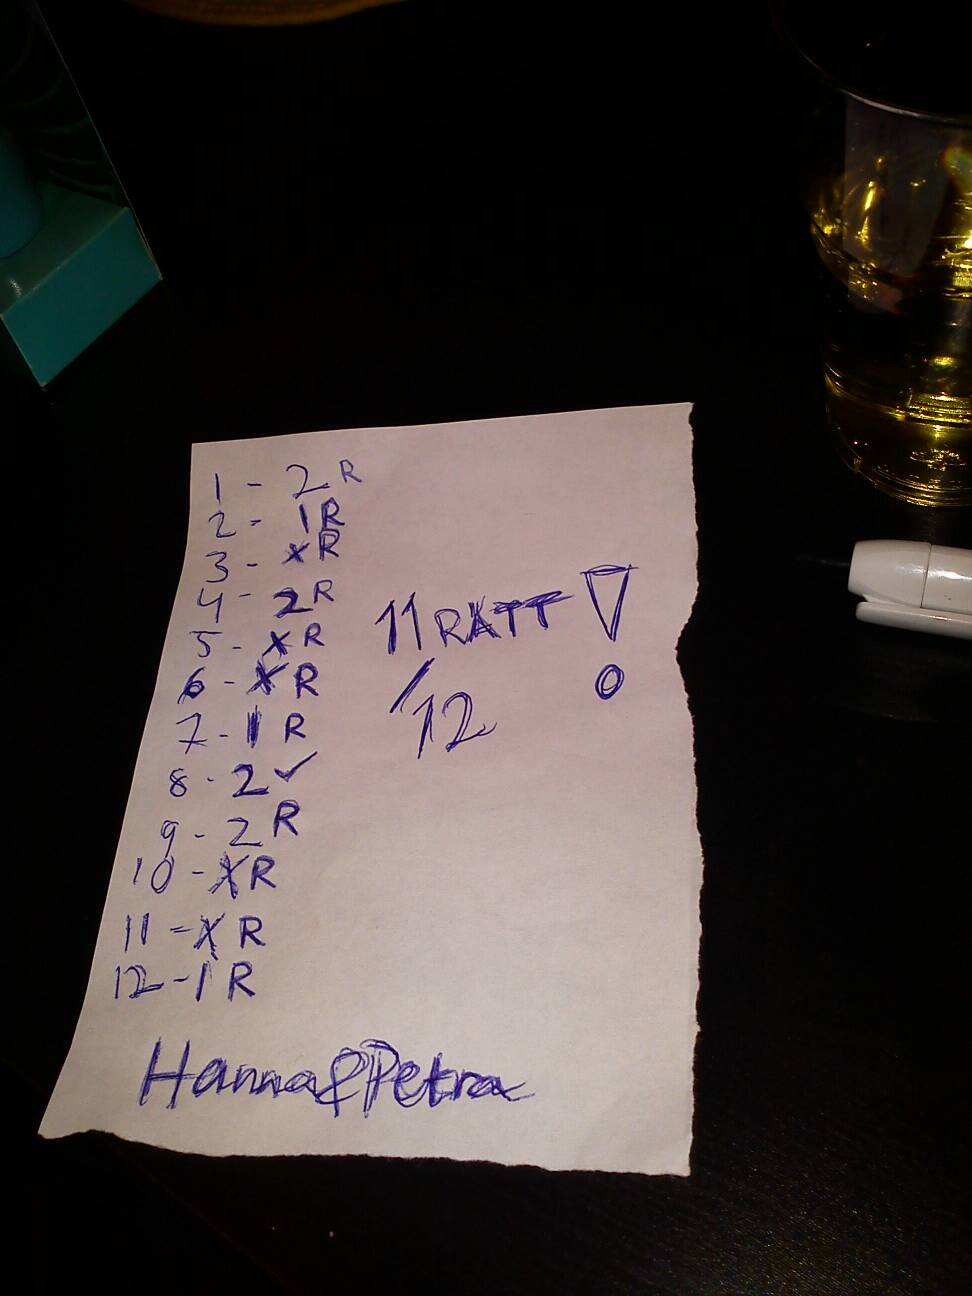 1 - 2 R
2 - 1 R
3 - X R
4 - 2 R
5 - X R
6 - X R
7 - 1 R
8 - 2 ✓
9 - 2 R
10 - X R
11 - X R
12 - 1 R
11 RÄTT !
/12
Hanna & Petra